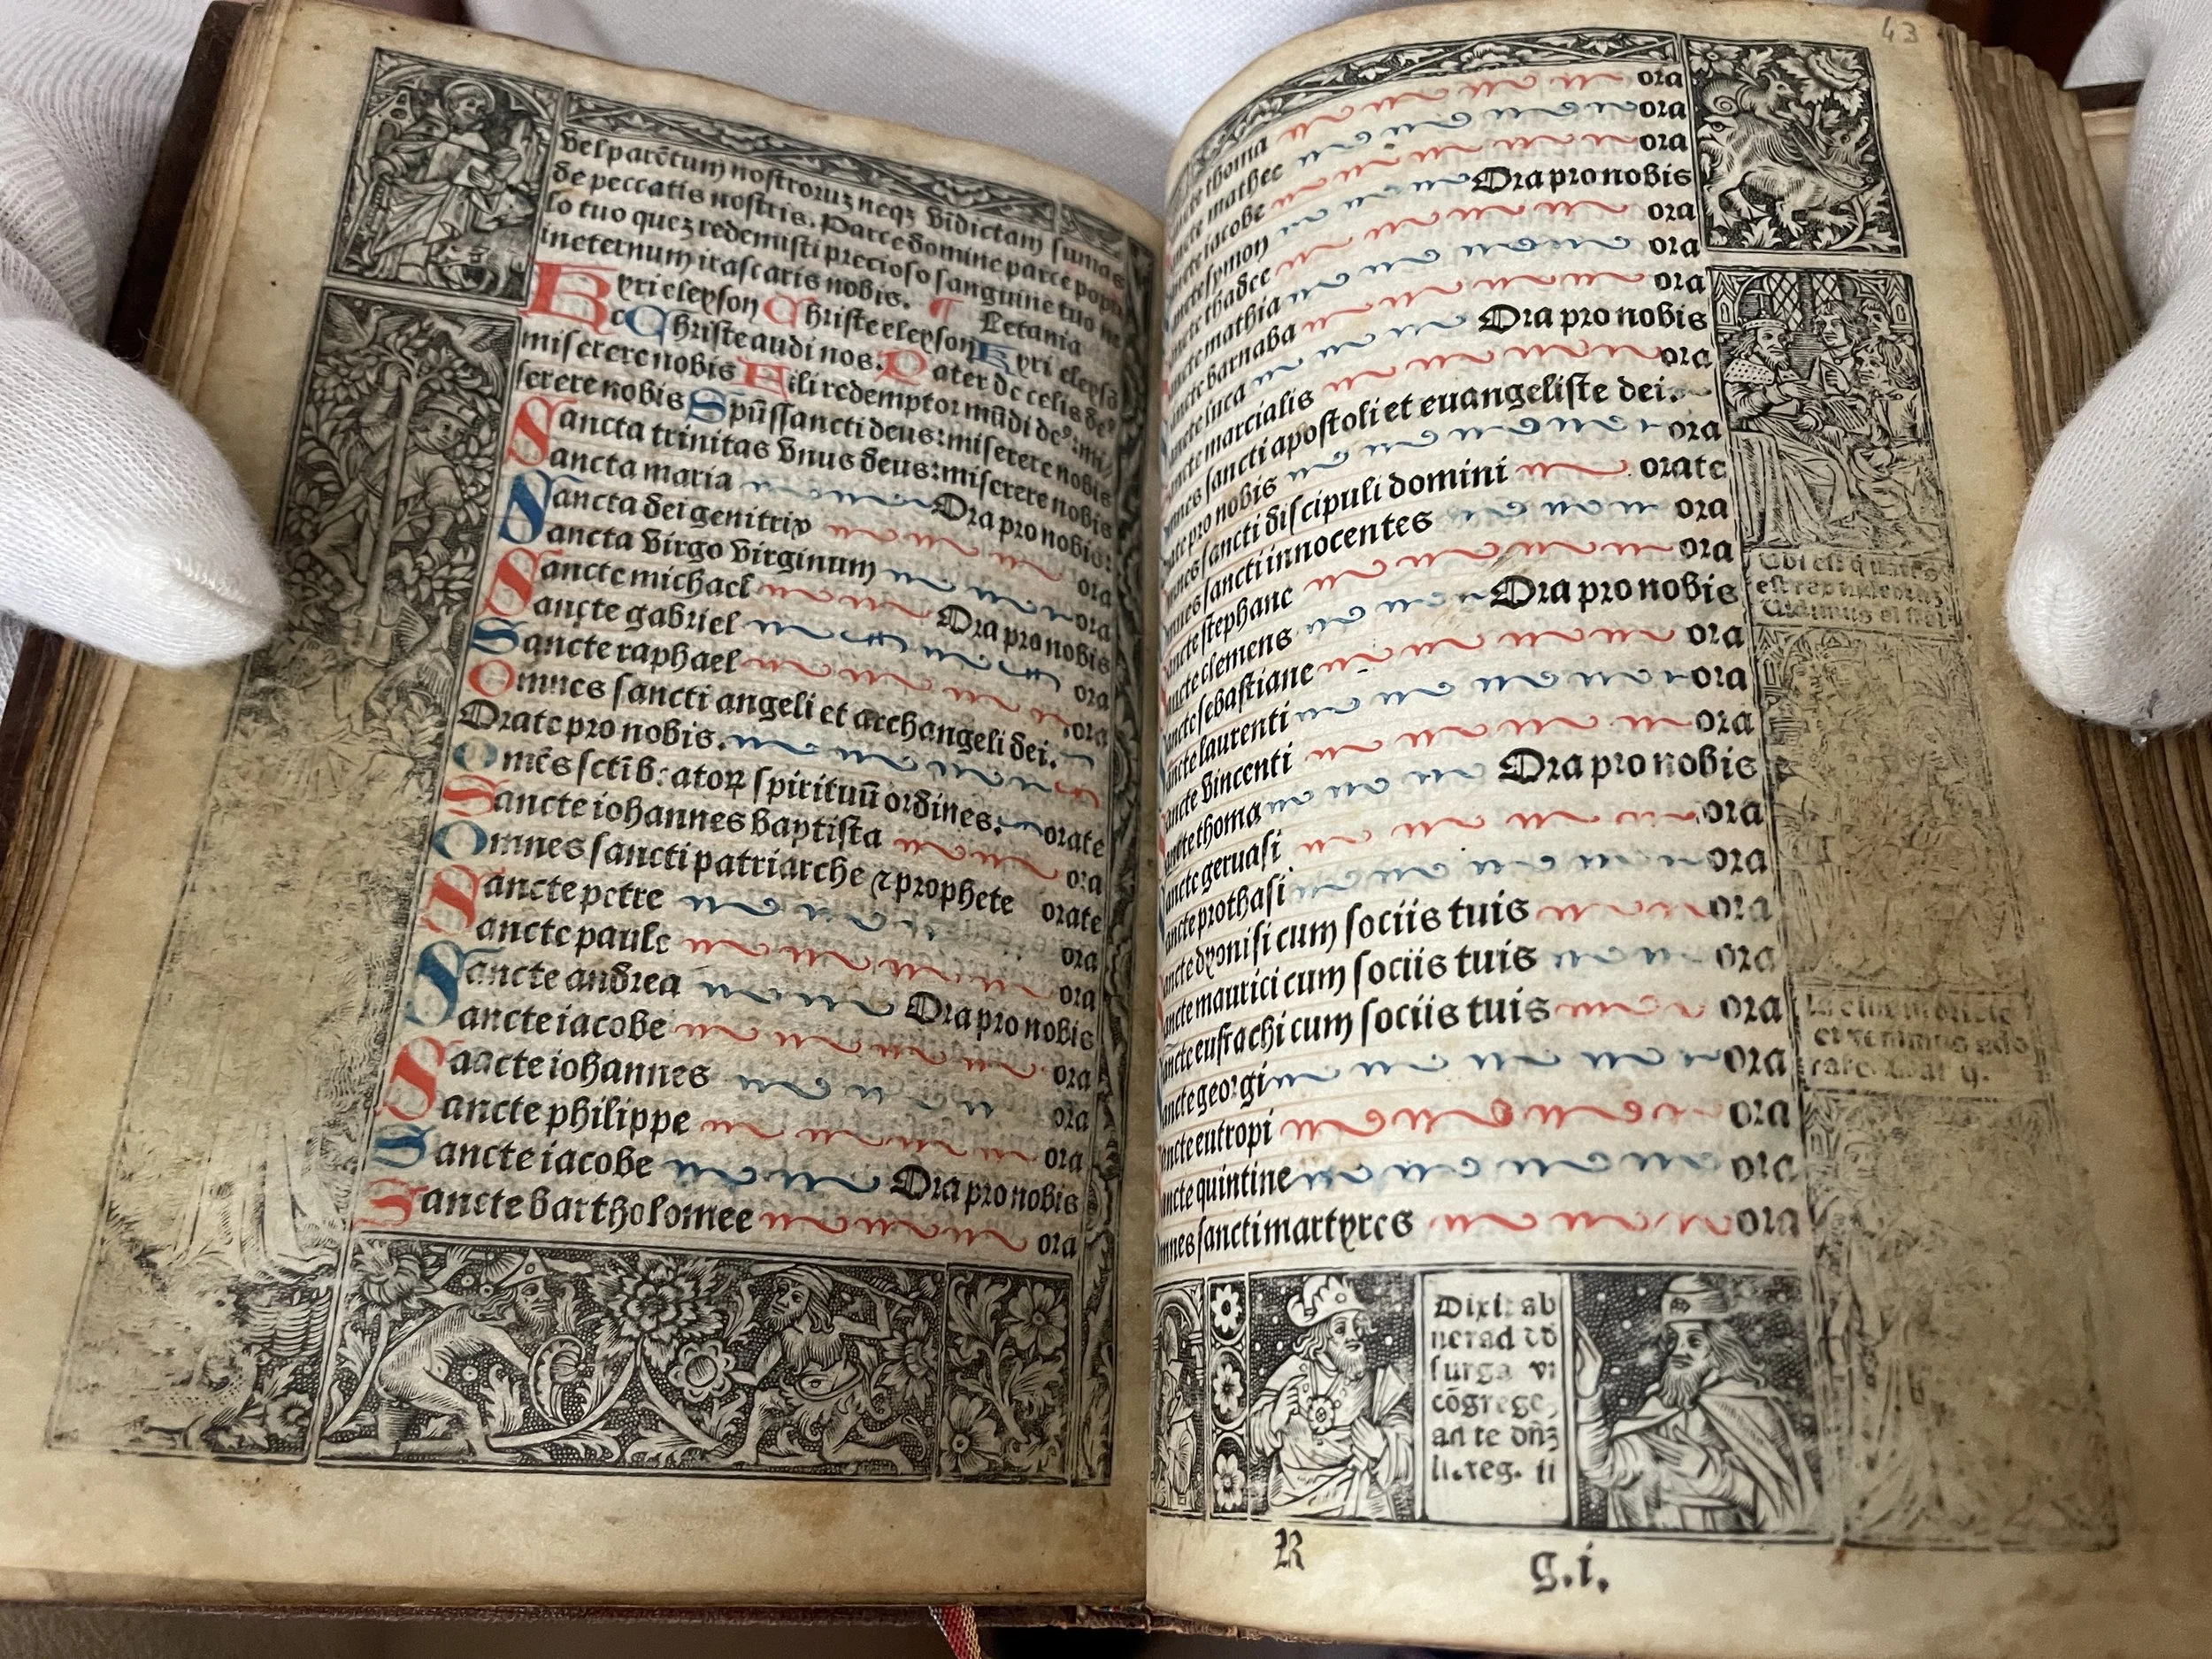 vel parẽtum nostroruz neqz vidictam sumas
de peccatis nostris. Parce domine parce popu
lo tuo quez redemisti precioso sanguine tuo ne
ineternum irascaris nobis. ¶ Letania
Kyri eleyson Christe eleyson Kyri eleysõ
Christe audi nos. Pater de celis deꝰ
miserere nobis Fili redemptor mũdi deꝰ: mi
serere nobis Spũssancti deus: miserere nobis
Sancta trinitas vnus deus: miserere nobis
Sancta maria Ora pro nobis:
Sancta dei genitrix ora
Sancta virgo virginum ora
Sancte michael Ora pro nobis
Sancte gabriel ora
Sancte raphael ora
Omnes sancti angeli et archangeli dei.
Orate pro nobis.
Omẽs sctĩ b: atoꝝ spirituũ ordines. orate
Sancte iohannes baptista ora
Omnes sancti patriarche ⁊ prophete orate
Sancte petre ora
Sancte paule ora
Sancte andrea Ora pro nobis
Sancte iacobe ora
Saacte iohannes ora
Sancte philippe ora
Sancte iacobe Ora pro nobis
Sancte bartholomee ora
43
Sancte thoma ora
Sancte mathee ora
Sancte iacobe ora
Sancte symon Ora pro nobis
Sancte thadee ora
Sancte mathia ora
Sancte barnaba ora
Sancte luca Ora pro nobis
Sancte marcialis ora
Omnes sancti apostoli et euangeliste dei.
Orate pro nobis ora
Omnes sancti discipuli domini orate
Omnes sancti innocentes ora
Sancte stephane ora
Sancte clemens Ora pro nobis
Sancte sebastiane ora
Sancte laurenti ora
Sancte vincenti ora
Sancte thoma Ora pro nobis
Sancte geruasi ora
Sancte prothasi ora
Sancte dyonisi cum sociis tuis ora
Sancte maurici cum sociis tuis ora
Sancte eustachi cum sociis tuis ora
Sancte georgi ora
Sancte eutropi ora
Sancte quintine ora
Omnes sancti martyres ora
Vbi est q natus
est rex iudeorũz
Vidimus
et venimus ado
rare
Dixit ab
ner ad dd
surgã vt
cõgrege,
ad te oñz
li. reg. ii
R g.i.